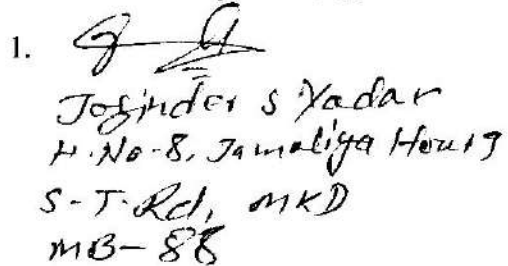 1.
Joginder S Yadav
H.No-8, Jamaliya House
S-T-Rd, MKD
MB-88